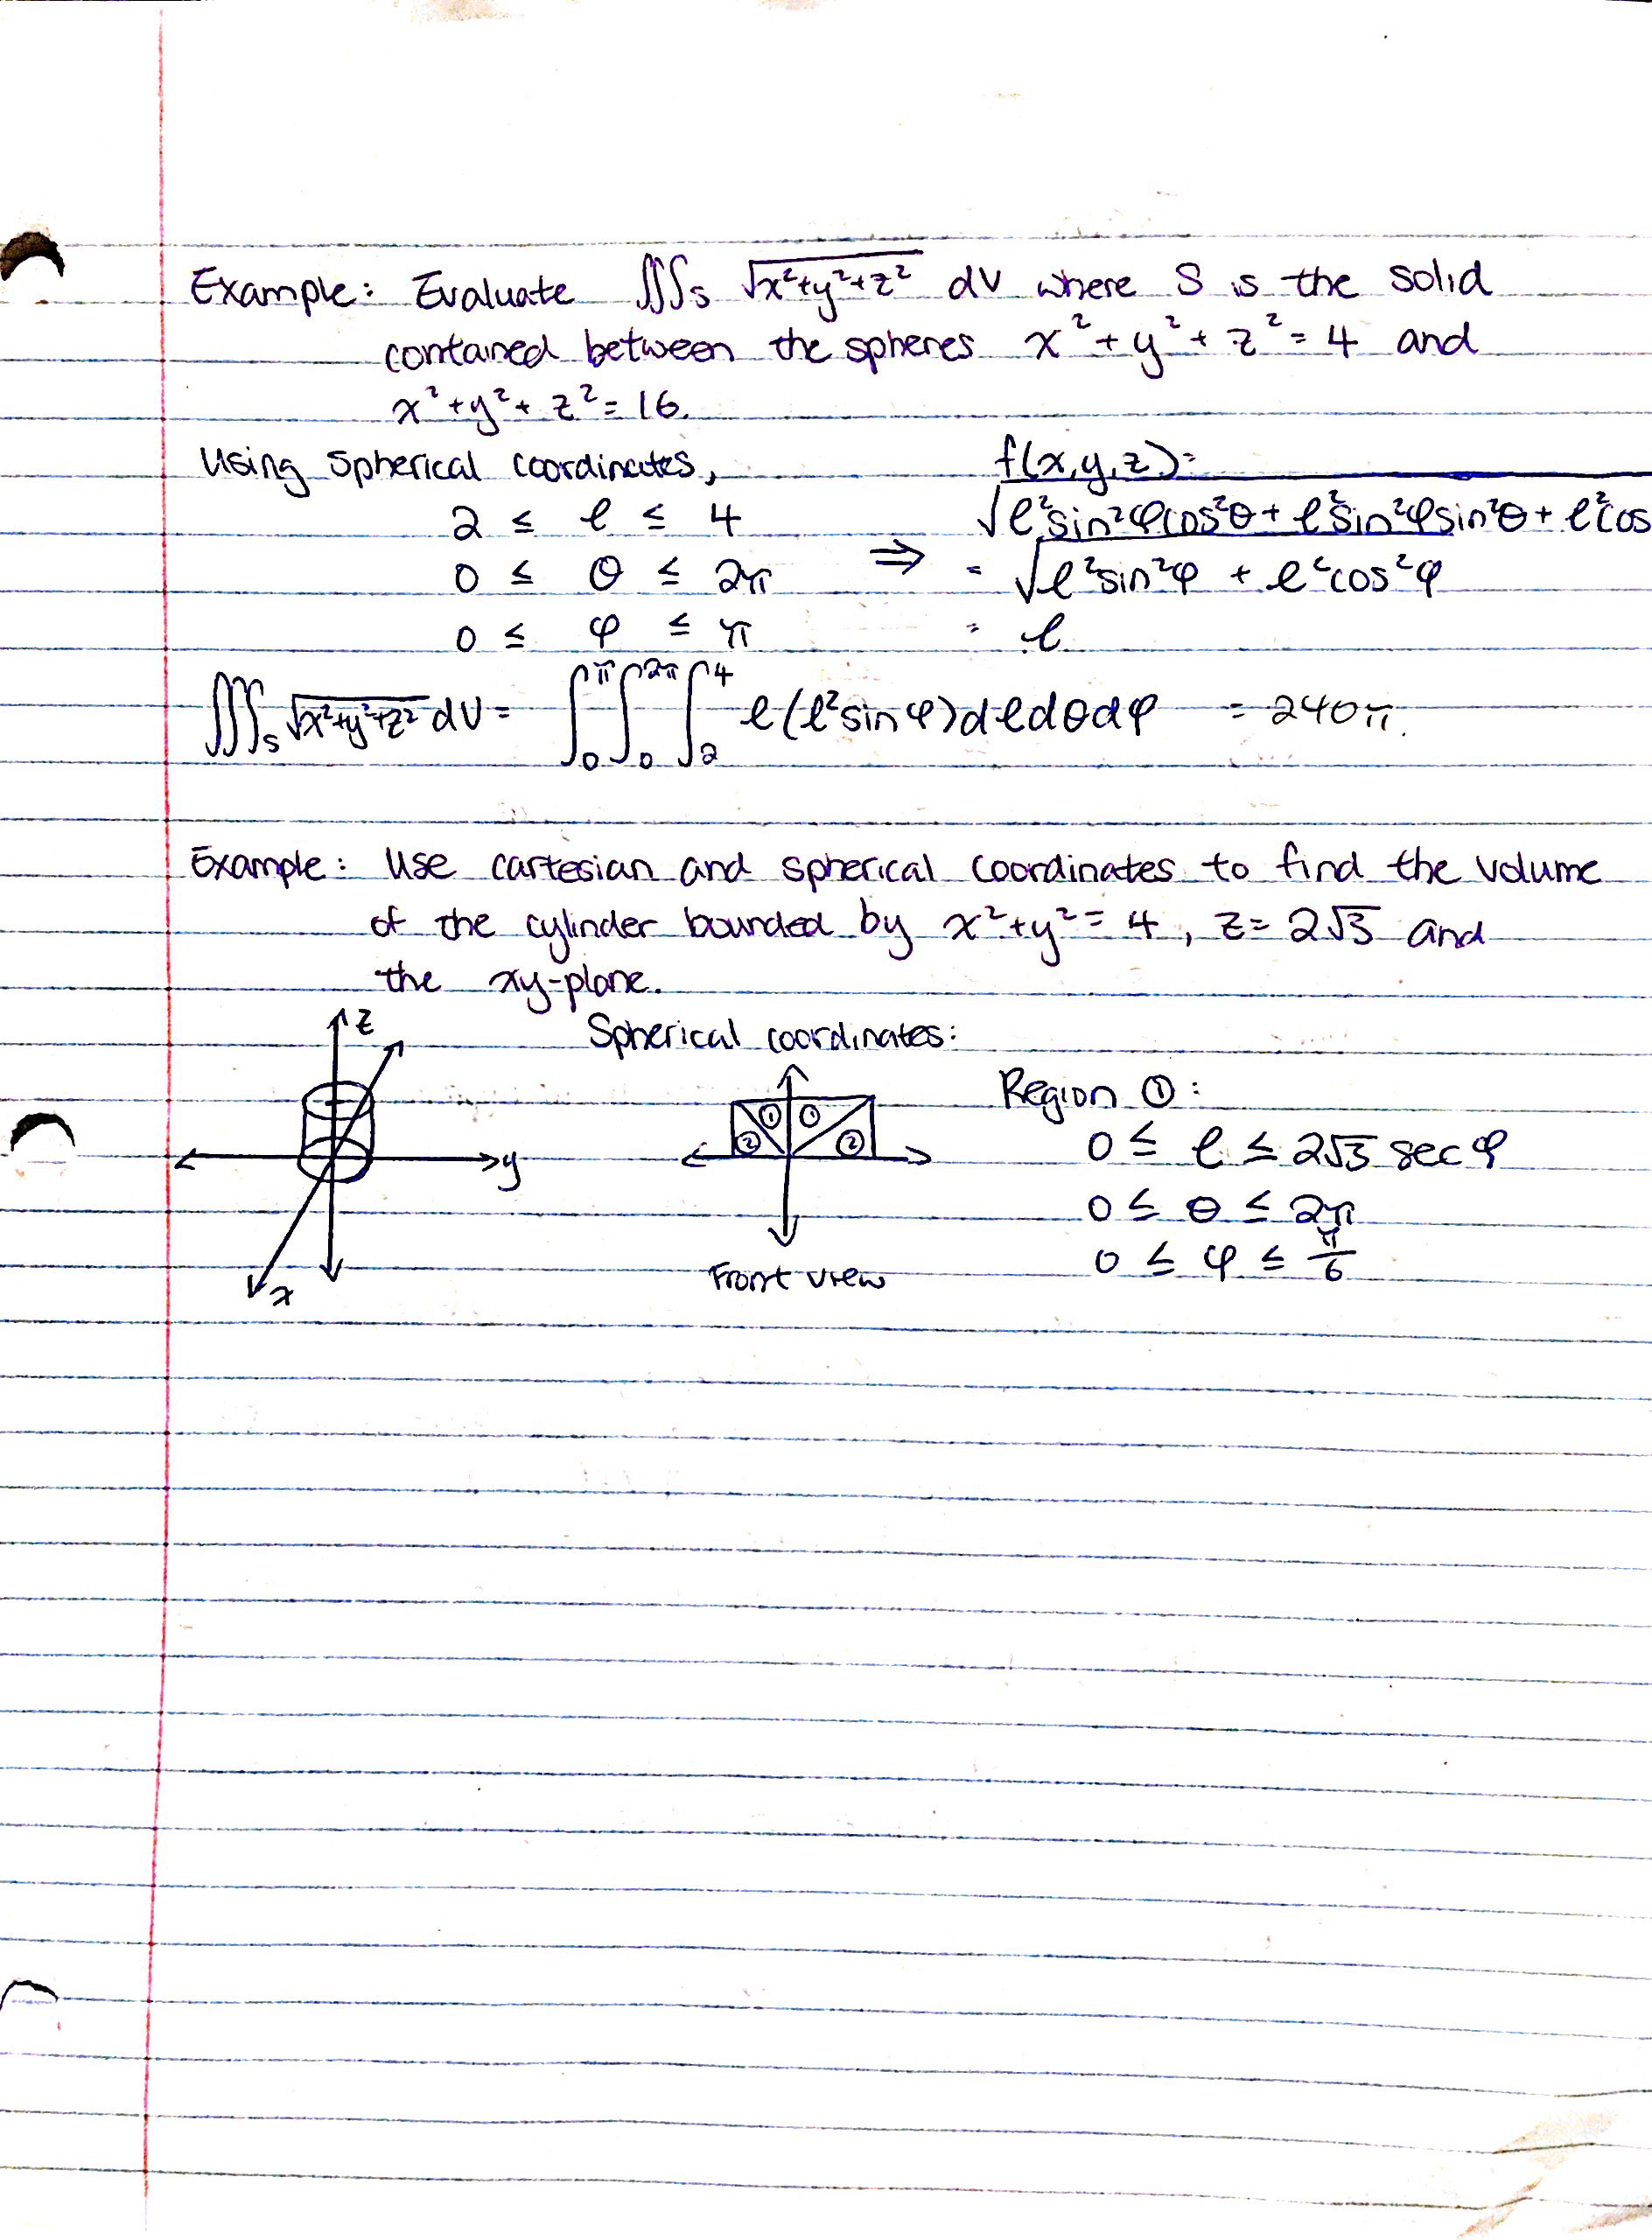 Example: Evaluate ∭_S √(x²+y²+z²) dV where S is the solid
contained between the spheres x²+y²+z²=4 and
x²+y²+z²=16.
Using spherical coordinates,
f(x,y,z)=
2 ≤ ρ ≤ 4
√ρ²sin²φcos²θ+ρ²sin²φsin²θ+ρ²cos
0 ≤ θ ≤ 2π
⇒ = √ρ²sin²φ + ρ²cos²φ
0 ≤ φ ≤ π
= ρ
∭_S √(x²+y²+z²) dV = ∫₀^π ∫₀^2π ∫₂^4 ρ(ρ²sinφ)dρdθdφ = 240π.
Example: Use cartesian and spherical coordinates to find the volume
of the cylinder bounded by x²+y²=4, z=2√3 and
the xy-plane.
z
y
x
Spherical coordinates:
① ①
② ②
Front view
Region ①:
0 ≤ ρ ≤ 2√3 sec φ
0 ≤ θ ≤ 2π
0 ≤ φ ≤ π/6